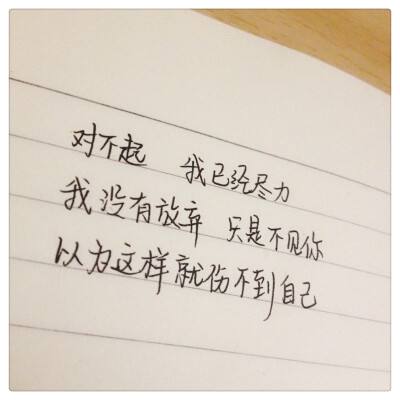 对不起 我已经尽力
我没有放弃 只是不见你
以为这样就伤不到自己